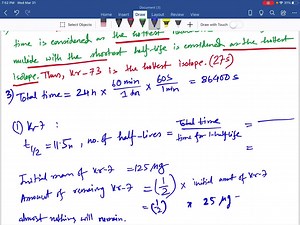 7:52 PM Wed Mar 17
Home Insert Draw Layout Review View
Select Objects
Draw with Touch
time is considered as the hottest
nuclide with the shortest half-life is considered as the hottest
isotope. Thus, Kr-73 is the hottest isotope. (27s)
3) Total time = 24h × 60min/1hr × 60s/1min = 86400 s
(1) Kr-7:
t1/2 = 11.5s, no. of half-lives = Total time / time for 1-half-life =
=
Initial mass of Kr-7 = 125 μg
Amount of remaining Kr-7 = (1/2) × initial amt of Kr-7
= (1/2) × 25 μg -
almost nothing will remain.